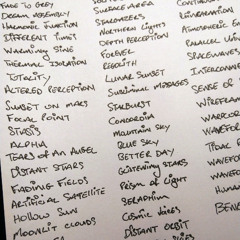 FADE TO GREY
DREAM ASSEMBLY
HARMONIC FUNCTION
DIFFERENT TIMES
WARMING SINE
THERMAL IGNITION
TOTALITY
ALTERED PERCEPTION
SUNSET ON MARS
FOCAL POINT
STASIS
ALPHA
TEARS OF AN ANGEL
DISTANT STARS
FADING FIELDS
ARTIFICIAL SATELLITE
HOLLOW SUN
MOONLIT CLOUDS
SURFACE AREA
STARGAZERS
NORTHERN LIGHTS
DEPTH PERCEPTION
FOREVER
REBOLITH
LUNAR SUNSET
SUBLIMINAL MESSAGES
STARBURST
CONCORDIA
MOUNTAIN SKY
BLUE SKY
BETTER DAY
GLISTENING STARS
PRISM OF LIGHT
SERAPHIM
COSMIC VOICES
DISTANT ORBIT
CONTINU
ATMOSPHERIC
PARALLEL UNI
SPACEWAVE
INTERCONN
SENSE OF
WIREFRAM
WARRIOR
WAVEFOR
TIDAL E
WAVEFO
HUMAN
BEN